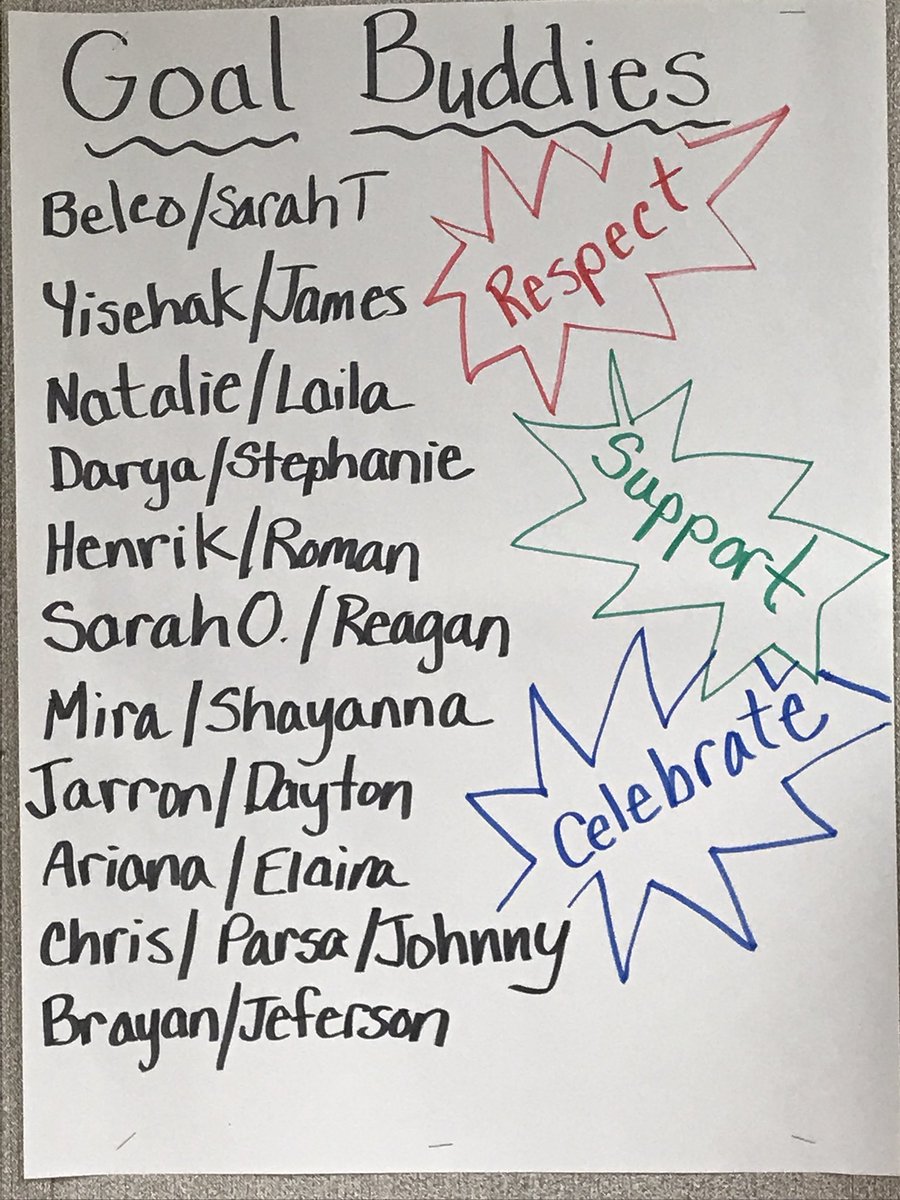 Goal Buddies
Beleo/Sarah T
Yisehak/James
Natalie/Laila
Darya/Stephanie
Henrik/Roman
Sarah O./Reagan
Mira/Shayanna
Jarron/Dayton
Ariana/Elaira
Chris/Parsa/Johnny
Brayan/Jeferson
Respect
Support
Celebrate